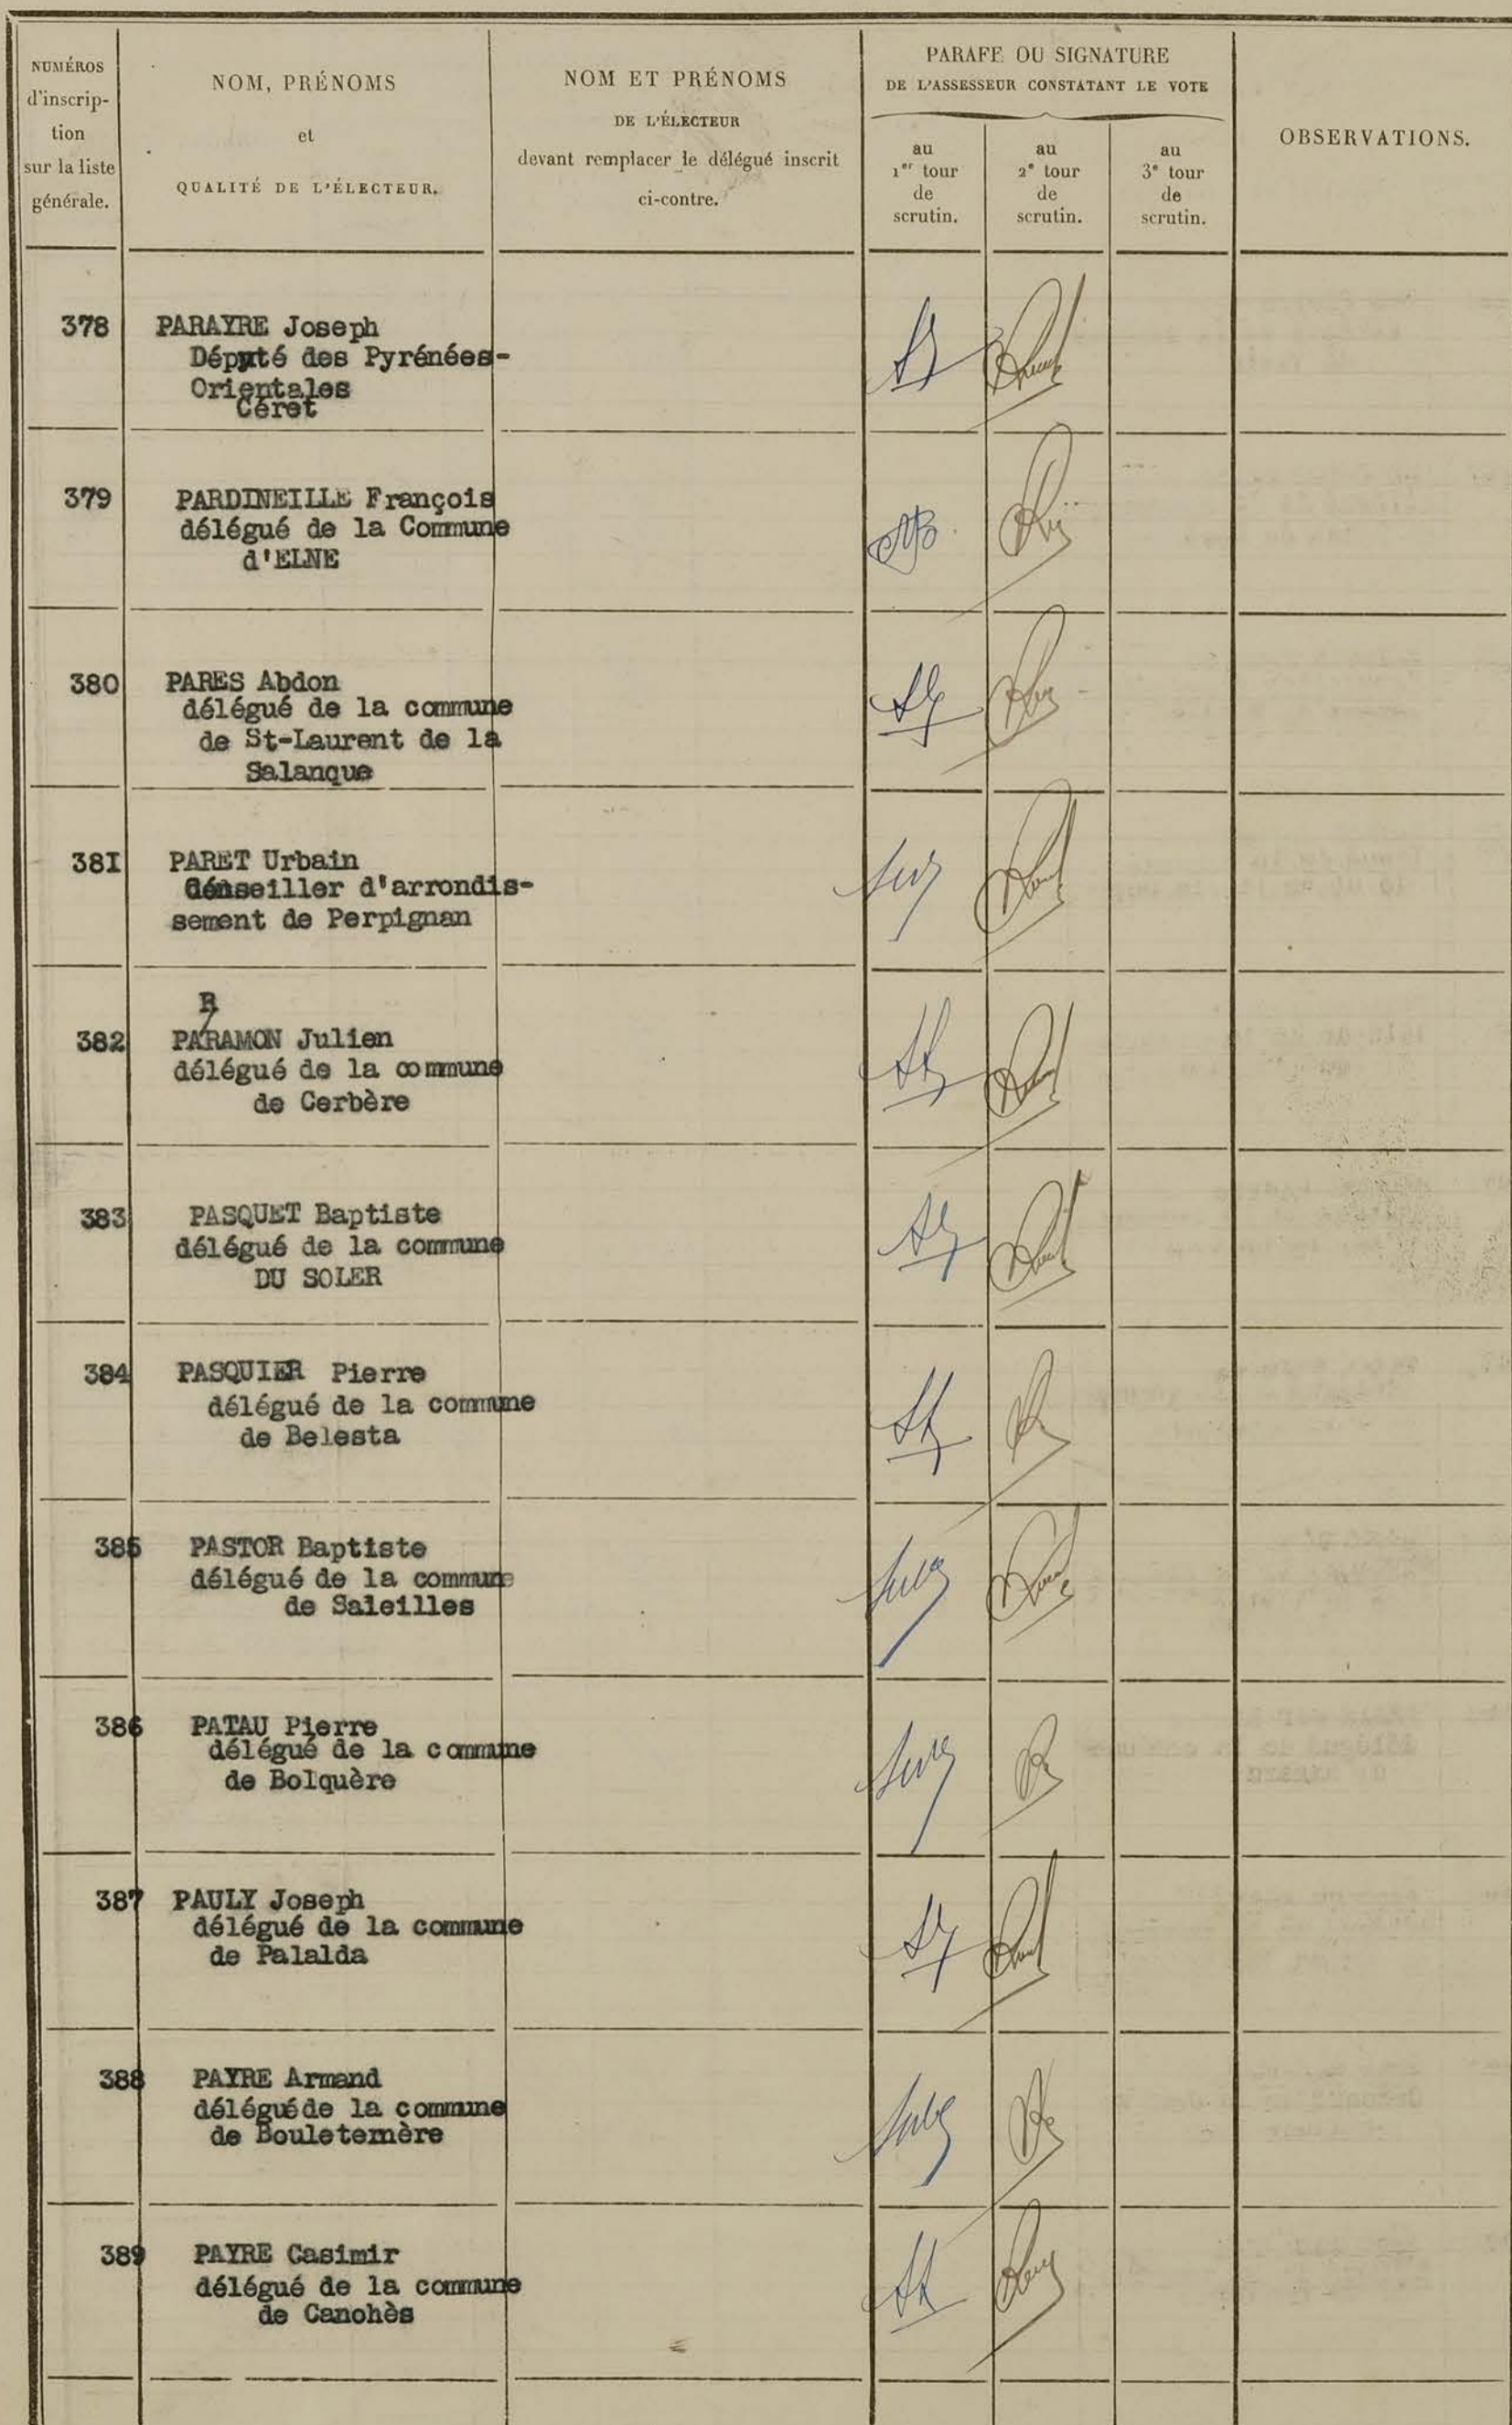 NUMÉROS
d'inscrip-
tion
sur la liste
générale.
NOM, PRÉNOMS
et
QUALITÉ DE L'ÉLECTEUR.
NOM ET PRÉNOMS
DE L'ÉLECTEUR
devant remplacer le délégué inscrit
ci-contre.
PARAFE OU SIGNATURE
DE L'ASSESSEUR CONSTATANT LE VOTE
au
1er tour
de
scrutin.
au
2e tour
de
scrutin.
au
3e tour
de
scrutin.
OBSERVATIONS.
378 PARAYRE Joseph
Député des Pyrénées-
Orientales
Céret
379 PARDINEILLE François
délégué de la Commune
d'ELNE
380 PARES Abdon
délégué de la commune
de St-Laurent de la
Salanque
38I PARET Urbain
Conseiller d'arrondis-
sement de Perpignan
R
382 PARAMON Julien
délégué de la commune
de Cerbère
383 PASQUET Baptiste
délégué de la commune
DU SOLER
384 PASQUIER Pierre
délégué de la commune
de Belesta
385 PASTOR Baptiste
délégué de la commune
de Saleilles
386 PATAU Pierre
délégué de la commune
de Bolquère
387 PAULY Joseph
délégué de la commune
de Palalda
388 PAYRE Armand
déléguéde la commune
de Bouleternère
389 PAYRE Casimir
délégué de la commune
de Canohès